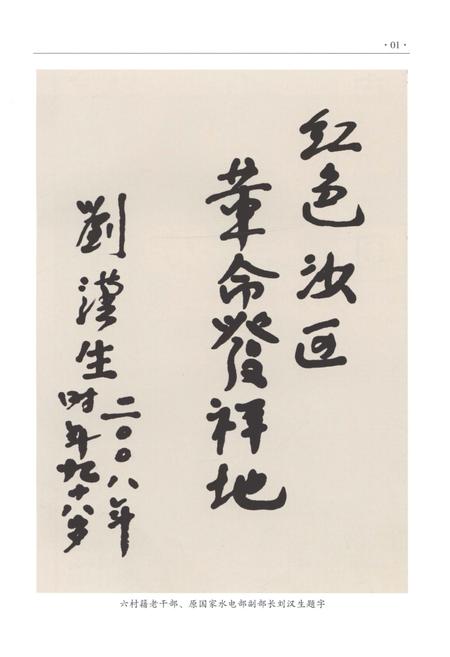 ·01·
红色汝匠
革命發祥地
劉漢生
二〇〇八年
时年九十八岁
六村籍老干部、原国家水电部副部长刘汉生题字